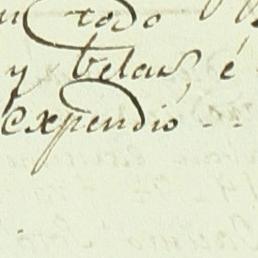 todo
y belas, é
expendió - -